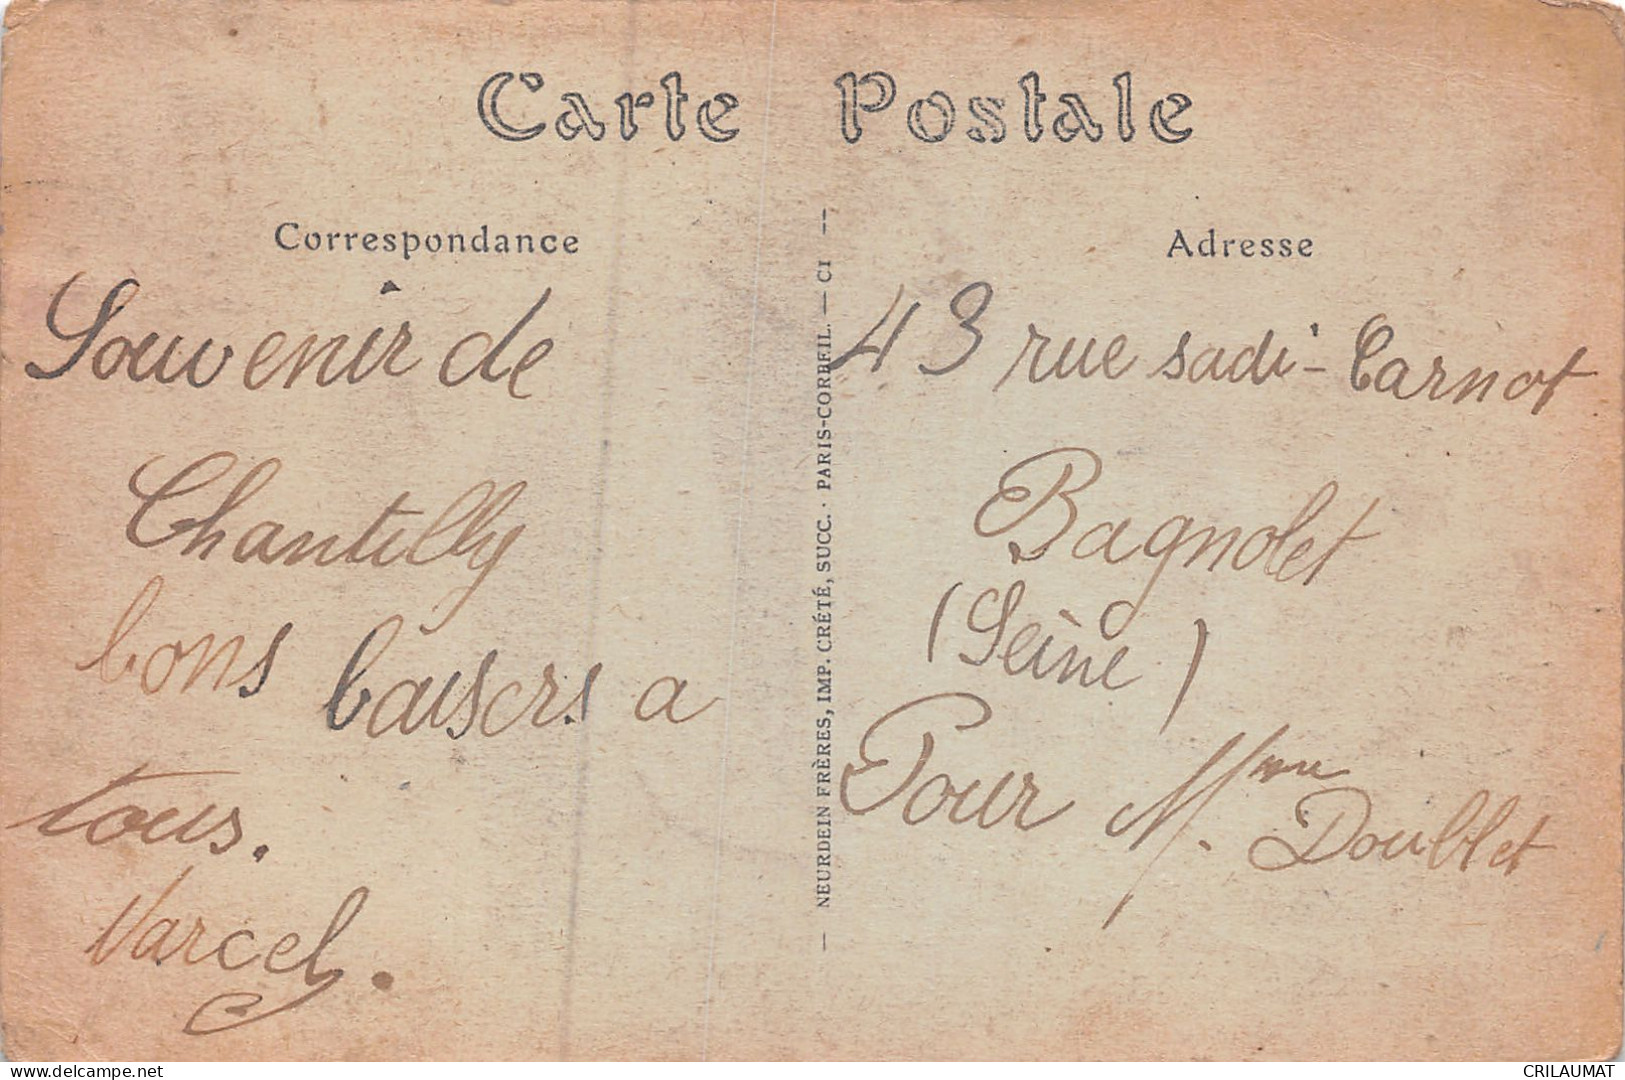 Carte Postale
Correspondance
Souvenir de
Chantilly
bons baisers a
tous.
Marcel.
NEURDEIN FRÈRES, IMP. CRÉTÉ, SUCC. · PARIS-CORBEIL. — CI
Adresse
43 rue sadi-Carnot
Bagnolet
(Seine)
Pour Mme Doublet
www.delcampe.net
CRILAUMAT